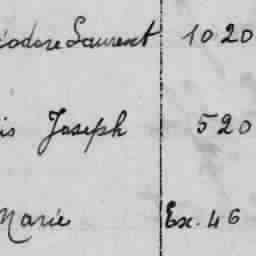 éodore Laurent 1020
is Joseph 520
Marie Ex. 46